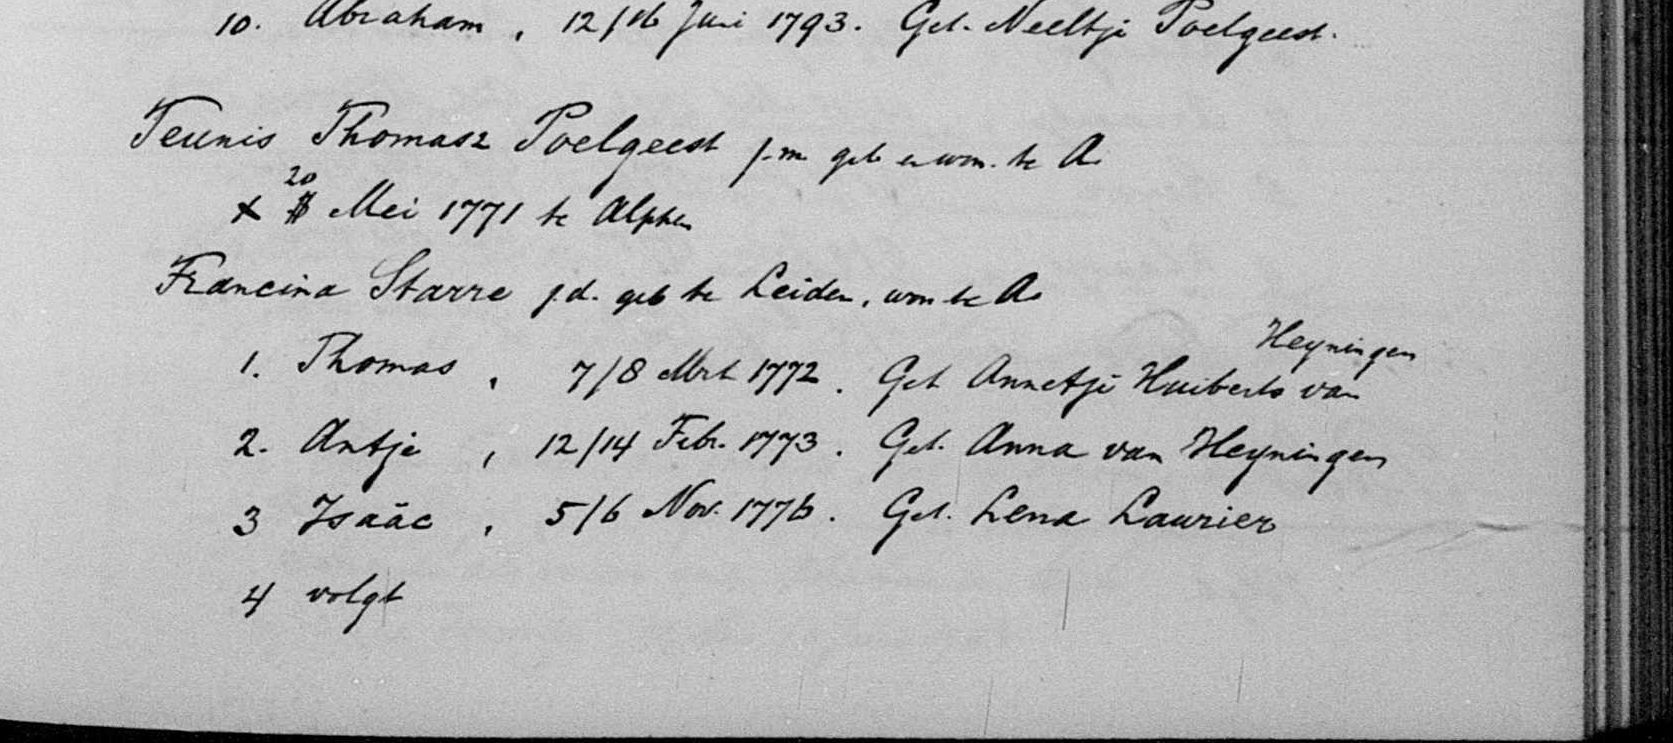 10. Abraham, 12/16 Juni 1793. Get. Neeltje Poelgeest.
Teunis Thomasz Poelgeest j.m. geb en won. te A.
20
x Mei 1771 te Alphen
Francina Starre j.d. geb te Leiden, won te A.
Heyningen
1. Thomas, 7/8 Mrt 1772. Get Annetje Huiberts van
2. Antje, 12/14 Febr. 1773. Get. Anna van Heyningen
3 Isaäc, 5/6 Nov. 1776. Get. Lena Laurier
4 volgt